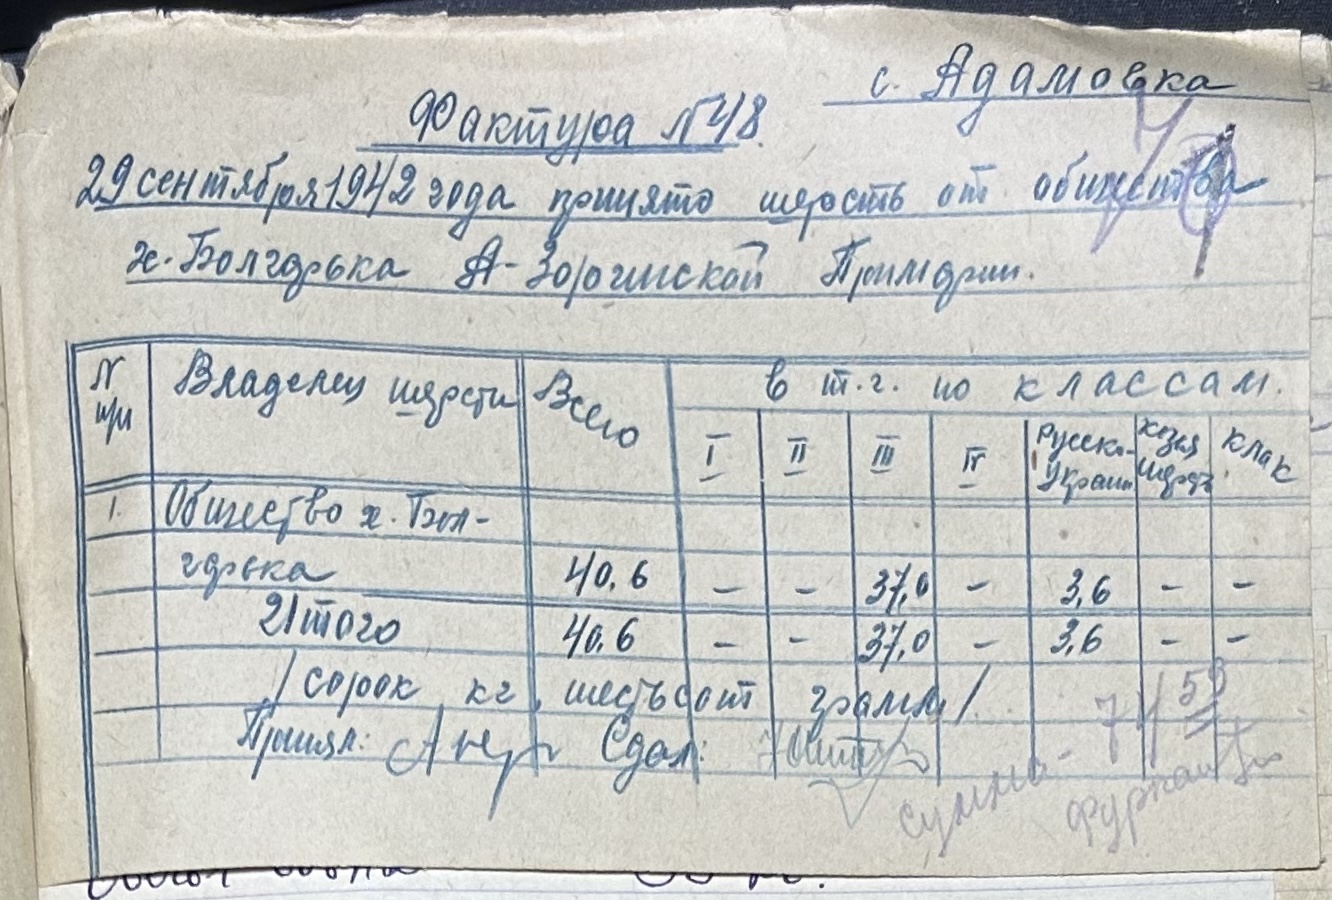 с. Адамовка
Фактура №48.
29 сентября 1942 года принято шерсть от общества
х. Болгарька А-Зоринской Примэрии.
N п/п Владелец шерсти Всего в т.г. по классам.
I II III IV Русско-Украин. козья шерсть клак
1. Общество х. Бол-
гарька 40,6 – – 37,0 – 3,6 – –
Итого 40,6 – – 37,0 – 3,6 – –
/сорок кг, шестьсот грамм/.
Принял: Сдал:
сумма - 74 50